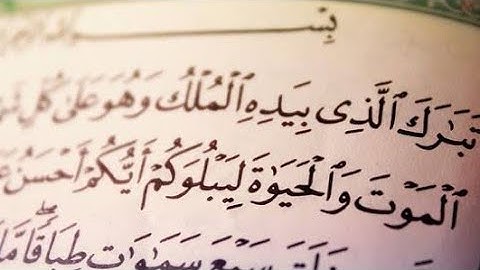 بِسْمِ
تَبَٰرَكَ ٱلَّذِى بِيَدِهِ ٱلْمُلْكُ وَهُوَ عَلَىٰ كُلِّ
ٱلْمَوْتَ وَٱلْحَيَوٰةَ لِيَبْلُوَكُمْ أَيُّكُمْ أَحْسَنُ
خَلَقَ سَبْعَ سَمَٰوَٰتٍ طِبَاقًا ۖ مَّا